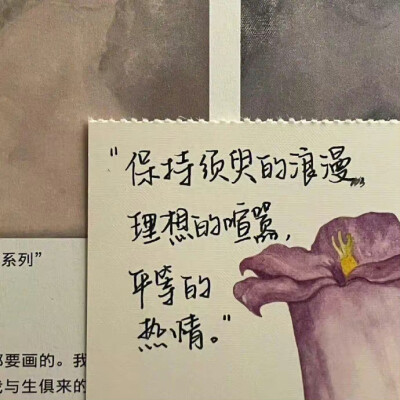 “保持须臾的浪漫，
理想的喧嚣，
平等的
热情。”
系列”
都要画的。我
我与生俱来的